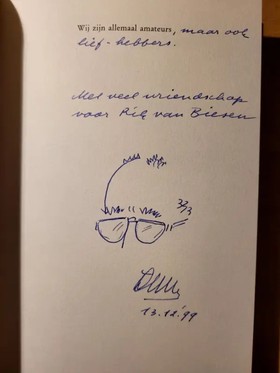 Wij zijn allemaal amateurs, maar ook
lief-hebbers.
Met veel vriendschap
voor Rik van Biesen
13.12.'99